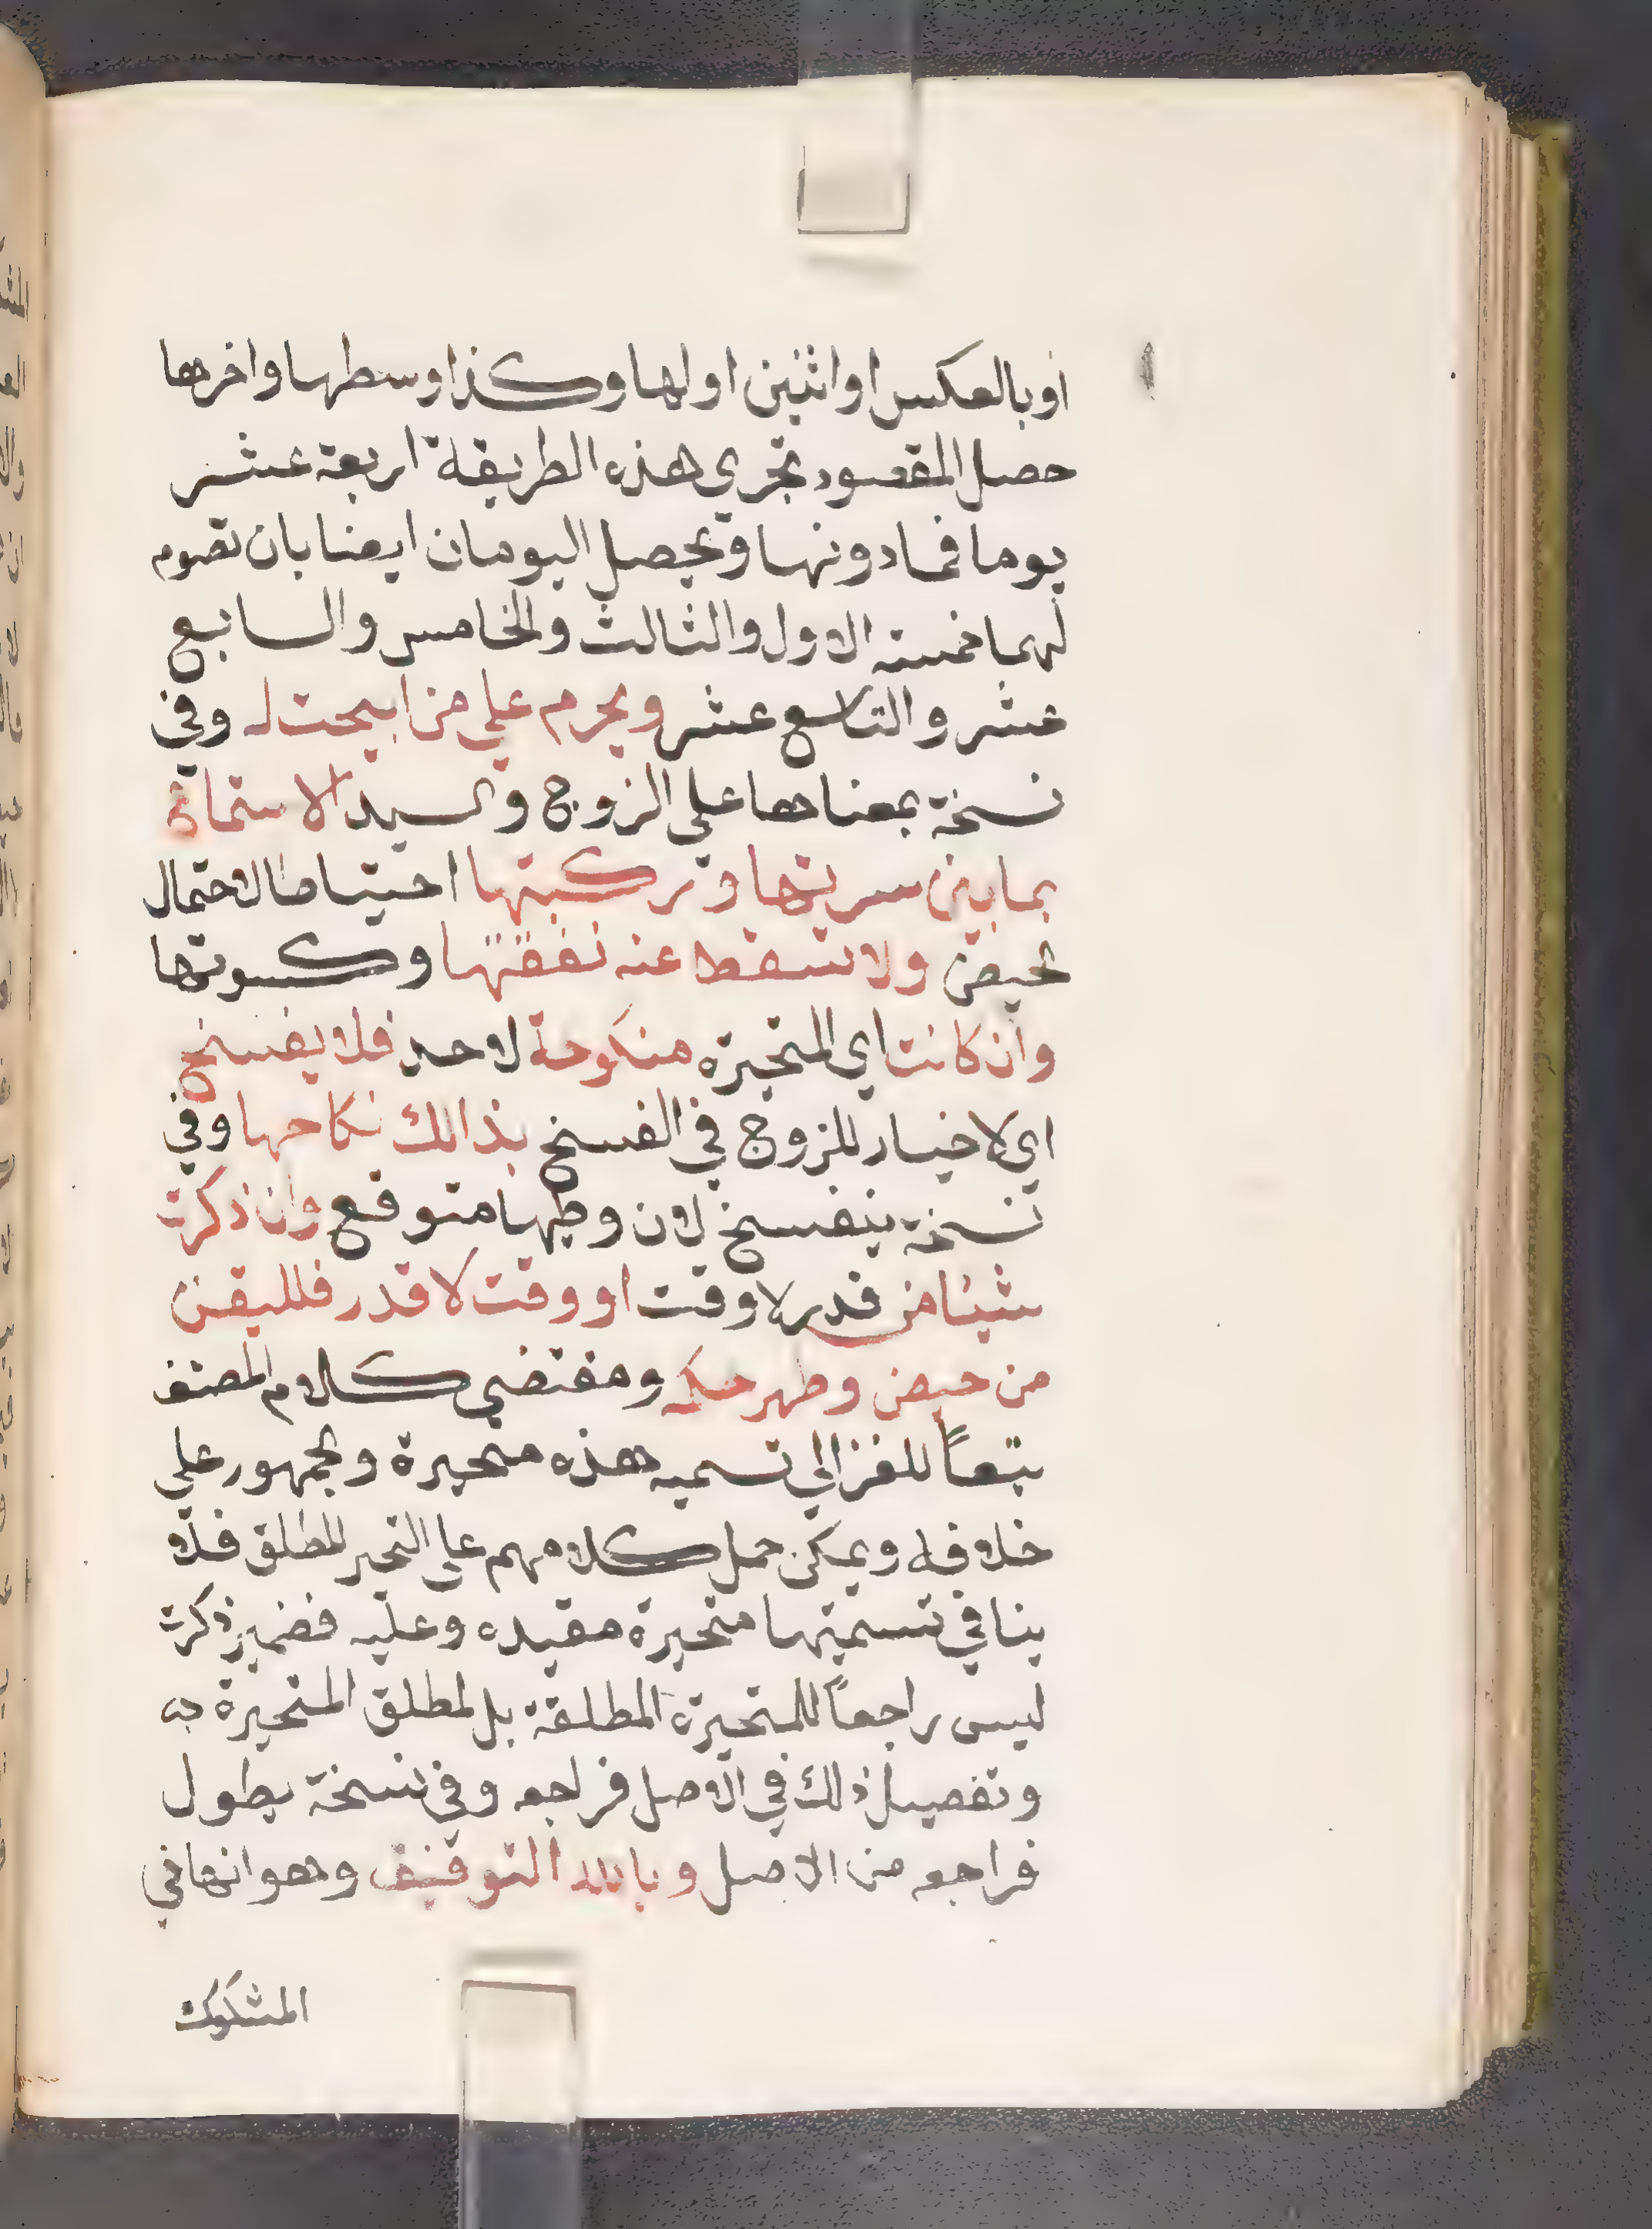 اوبالعكس او اثنين اولها وكذا وسطها واخرها
حصل المقصود تجري هذه الطريقة اربعة عشر
يوما فما دونها ويحصل اليومان ايضا بان تصوم
لهما خمسة الاول والثالث والخامس والسابع
عشر والتاسع عشر ويحرم علي من ابيحت له وفي
نسخة بمعناها علي الزوج والسيد الاستمتاع
بما بين سرتها وركبتها احتياطا لاحتمال
لحيض ولا تسقط عنه نفقتها وكسوتها
وان كانت اي المتحيرة منكوحة لاحد فلا يفسخ
اي لا خيار للزوج في الفسخ بذالك نكاحها وفي
نسخة ينفسخ لان وطيها متوقع وان ذكرت
شيئا من قدر لا وقت او وقت لا قدر فلليقين
من حيض وطهر حكمه ومقتضي كلام المصنف
تبعاً للغزالي تسميه هذه متحيرة ولجمهور علي
خلافه ويمكن حمل كلامهم علي التحير المطلق فلا
ينافي تسميتها متحيرة مقيده وعليه فضمير ذكرت
ليس راجعاً للمتحيرة المطلقة بل لمطلق المتحيرة
وتفصيل ذلك في الاصل فراجعه وفي نسخة يطول
فراجعه من الاصل وبالله التوفيق وهو انها في
المشكوك